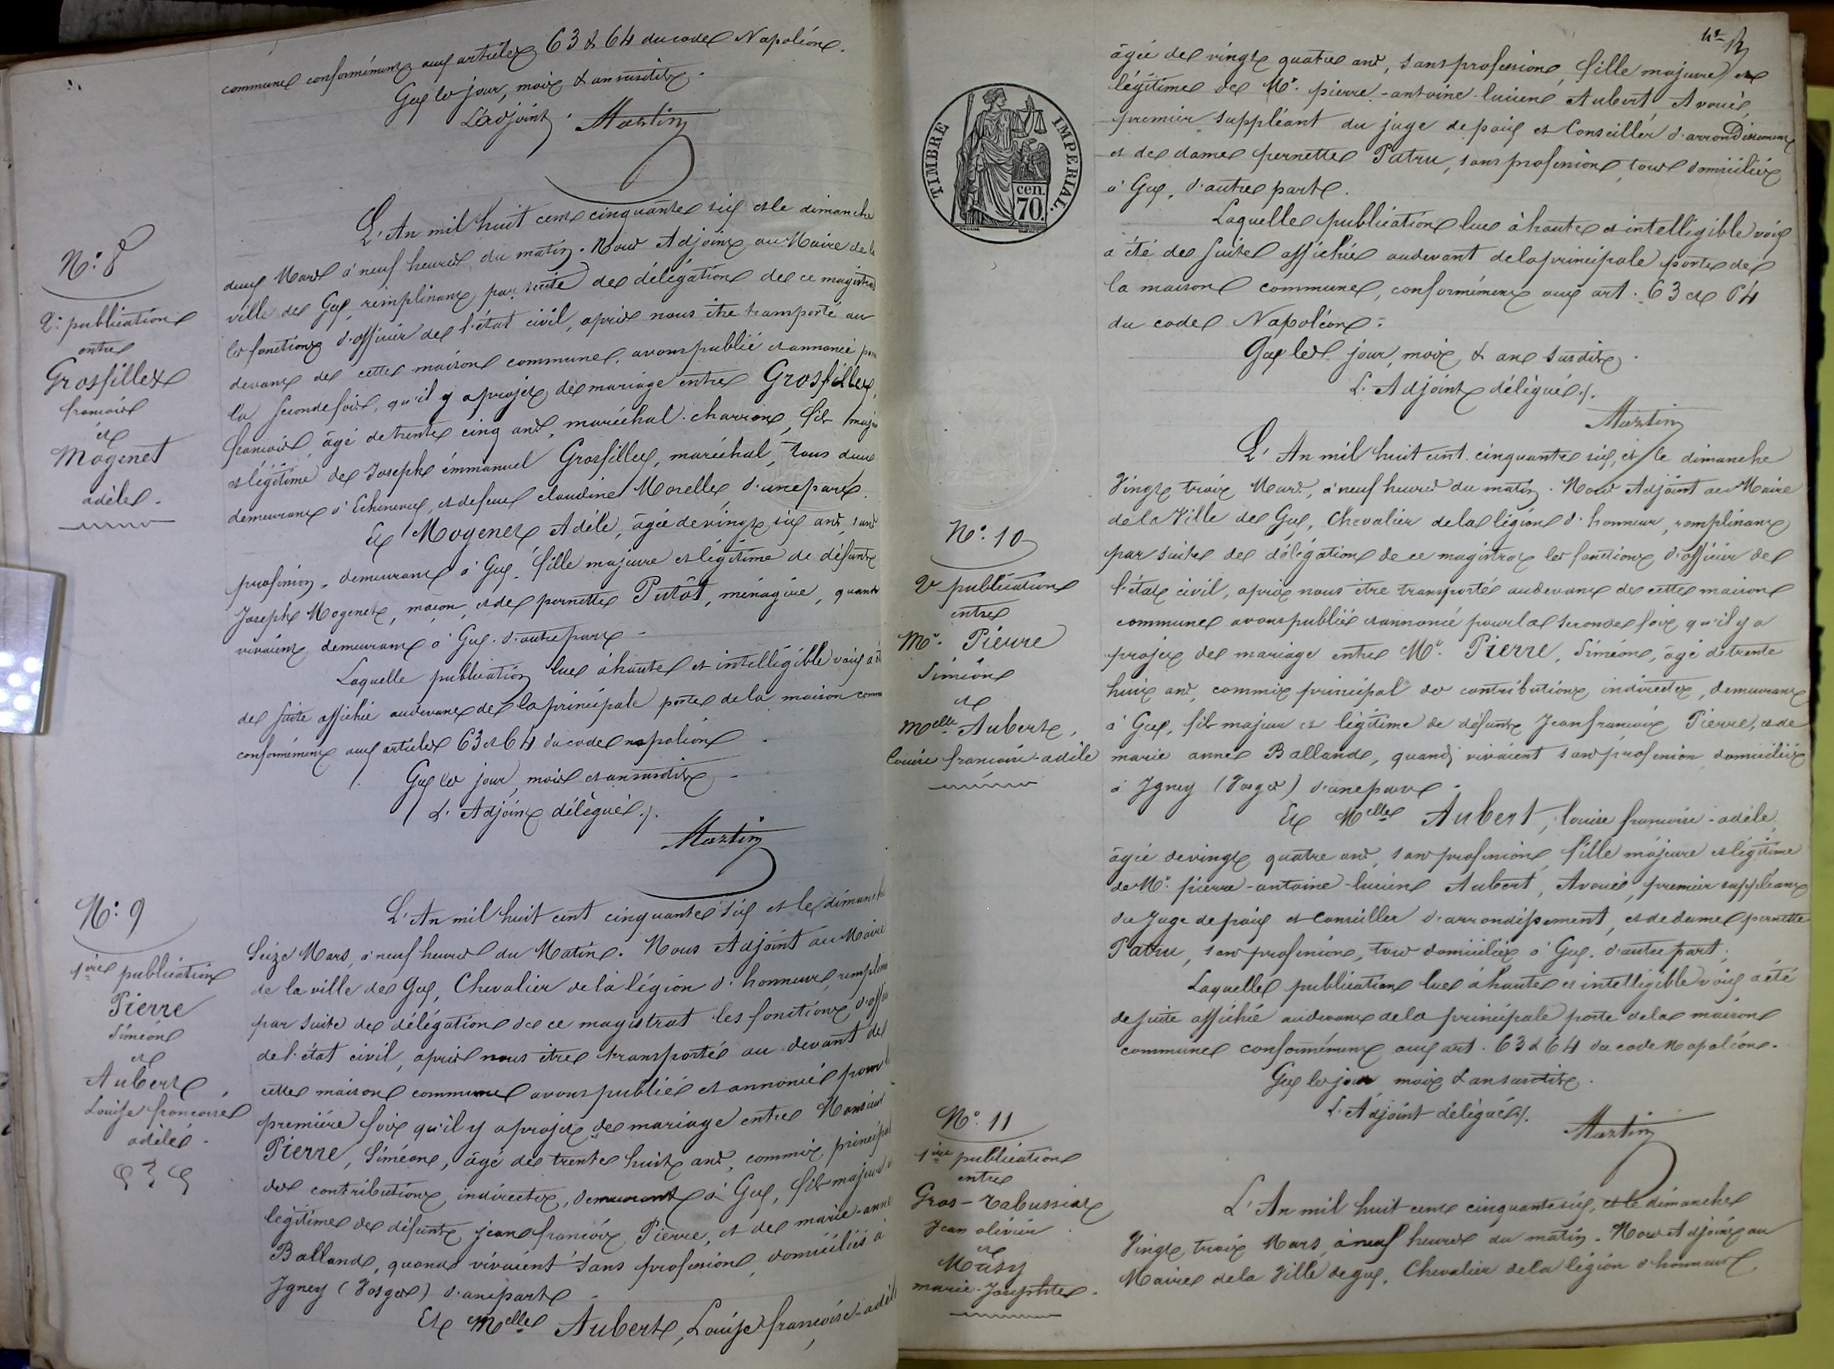 commune conformément aux articles 63 & 64 du code Napoléon.
Gex les jour, mois & an susdits.
L'adjoint Martin
N.° 8
2.e publication
entre
Grosfillex
françois
et
Mogenet
adèle.
L'An mil huit cent cinquante six et le dimanche
deux Mars à neuf heures du matin. Nous Adjoint au Maire de la
ville de Gex, remplissant par suite de délégation de ce magistrat
les fonctions d'officier de l'état civil, après nous être transporté au
devant de cette maison commune, avons publié et annoncé pour
la seconde fois, qu'il y a projet de mariage entre Grosfillex,
françois, âgé de trente cinq ans, maréchal-charron, fils majeur
et légitime de Joseph emmanuel Grosfillex, maréchal, tous deux
demeurant à Echenevex, et de feue claudine Morelle d'une part.
Et Mogenet Adèle, âgée de vingt six ans, sans
profession, demeurant à Gex, fille majeure et légitime de défunts
Joseph Mogenet, maçon, et de pernette Putôt, ménagère, quand
vivaient demeurant à Gex d'autre part.
Laquelle publication lue à haute et intelligible voix a été
de suite affichée au devant de la principale porte de la maison commune
conformément aux articles 63 et 64 du code napoléon.
Gex les jour, mois et an susdits.
L'Adjoint délégué ./.
Martin
N.° 9
1ère publication
Pierre
Siméon
et
Aubert,
Louise françoise
adèle.
L'An mil huit cent cinquante six et le dimanche
Seize Mars, à neuf heures du Matin. Nous Adjoint au Maire
de la ville de Gex, Chevalier de la légion d'honneur, remplissant
par suite de délégation de ce magistrat les fonctions d'officier
de l'état civil, après nous être transporté au devant de
cette maison commune avons publié et annoncé pour la
première fois qu'il y a projet de mariage entre Monsieur
Pierre, Siméon, âgé de trente huit ans, commis principal
des contributions indirectes, demeurant à Gex, fils majeur et
légitime de défunts jean françois Pierre, et de marie-anne
Balland, quand vivaient sans profession, domiciliés à
Igney (Vosges) d'une part.
Et Melle Aubert, Louise françoise-adèle
TIMBRE IMPERIAL.
cen.
70.
âgée de vingt quatre ans, sans profession, fille majeure et
légitime de Mr. pierre-antoine-lucien Aubert Avoué
premier suppléant du juge de paix et Conseiller d'arrondissement
et de dame pernette Patru, sans profession, tous domiciliés
à Gex, d'autre part.
Laquelle publication lue à haute et intelligible voix
a été de suite affichée au devant de la principale porte de
la maison commune, conformément aux art. 63 et 64
du code Napoléon.
Gex les jour, mois, & an susdits.
L'Adjoint délégué ./.
Martin
N.° 10
2e publication
entre
Mr. Pierre
Siméon
et
Melle Aubert,
louise françoise-adèle
L'An mil huit cent cinquante six, et le dimanche
Vingt trois Mars, à neuf heures du matin. Nous Adjoint au Maire
de la Ville de Gex, Chevalier de la légion d'honneur, remplissant
par suite de délégation de ce magistrat les fonctions d'officier de
l'état civil, après nous être transporté au devant de cette maison
commune avons publié et annoncé pour la seconde fois qu'il y a
projet de mariage entre Mr. Pierre, Siméon, âgé de trente
huit ans, commis principal des contributions indirectes, demeurant
à Gex, fils majeur et légitime de défunts Jean françois Pierre, et de
marie anne Balland, quand vivaient sans profession domiciliés
à Igney (Vosges) d'une part.
Et Melle Aubert, louise françoise-adèle,
âgée de vingt quatre ans, sans profession, fille majeure et légitime
de Mr. pierre-antoine-lucien Aubert, Avoué, premier suppléant
du Juge de paix et Conseiller d'arrondissement, et de dame pernette
Patru, sans profession, tous domiciliés à Gex, d'autre part;
Laquelle publication lue à haute et intelligible voix a été
de suite affichée au devant de la principale porte de la maison
commune conformément aux art. 63 & 64 du code Napoléon.
Gex les jour mois & an susdits.
L'Adjoint délégué ./.
Martin
N.° 11
1ère publication
entre
Gros-Tabussiat
Jean olivier
et
Musy
marie-Josephte.
L'An mil huit cent cinquante six, et le dimanche
Vingt trois Mars, à neuf heures du matin. Nous Adjoint au
Maire de la Ville de Gex, Chevalier de la légion d'honneur,